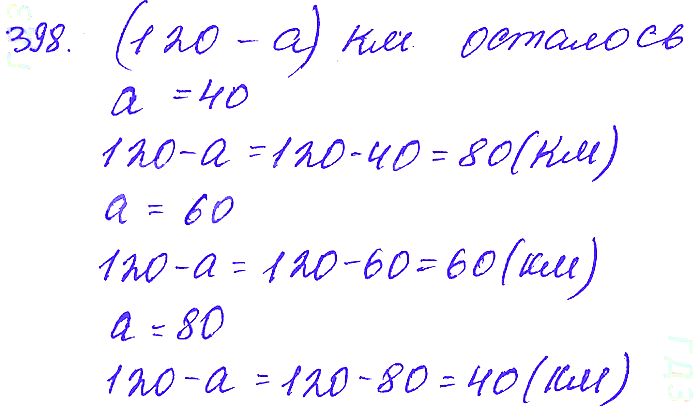 398. (120 - a) км осталось
a = 40
120 - a = 120 - 40 = 80 (км)
a = 60
120 - a = 120 - 60 = 60 (км)
a = 80
120 - a = 120 - 80 = 40 (км)
ГДЗ